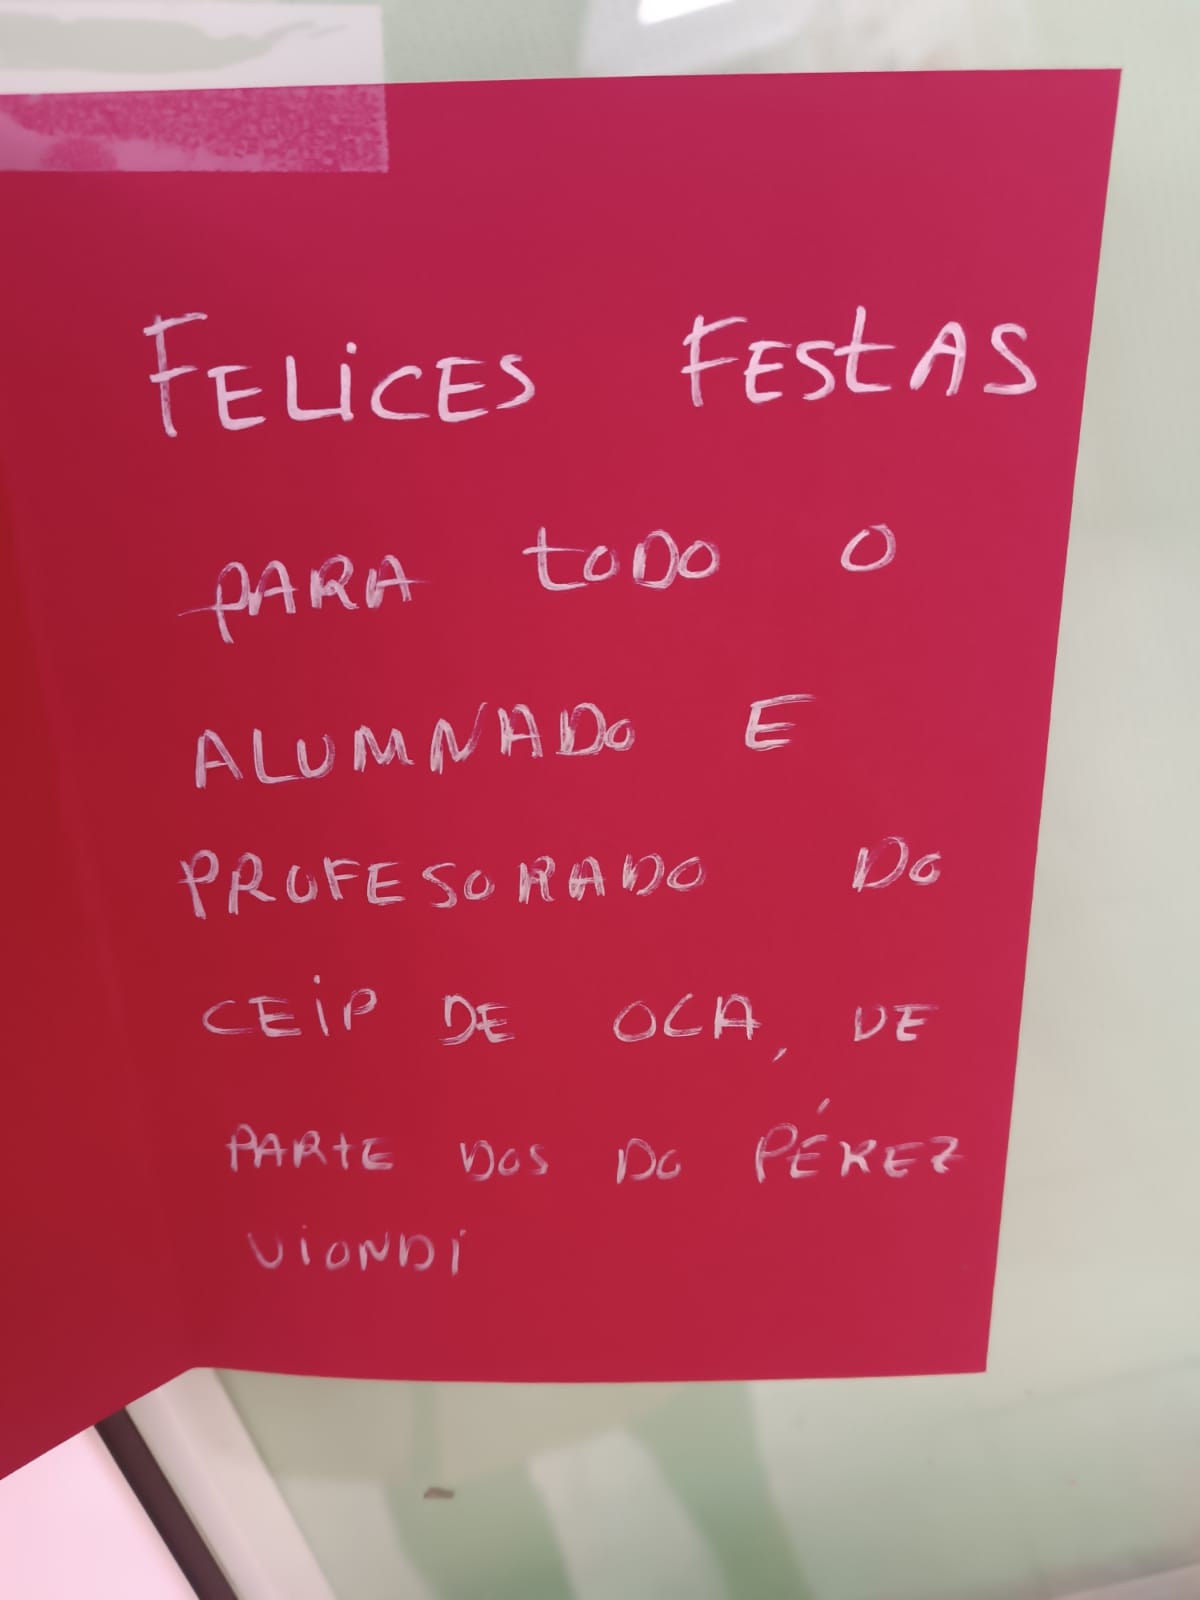 FELiCES FEStAS
PARA toDO O
ALUMNADO E
PROFESORADO DO
CEiP DE OCA, DE
PARtE DOS DO PÉREZ
ViONDi